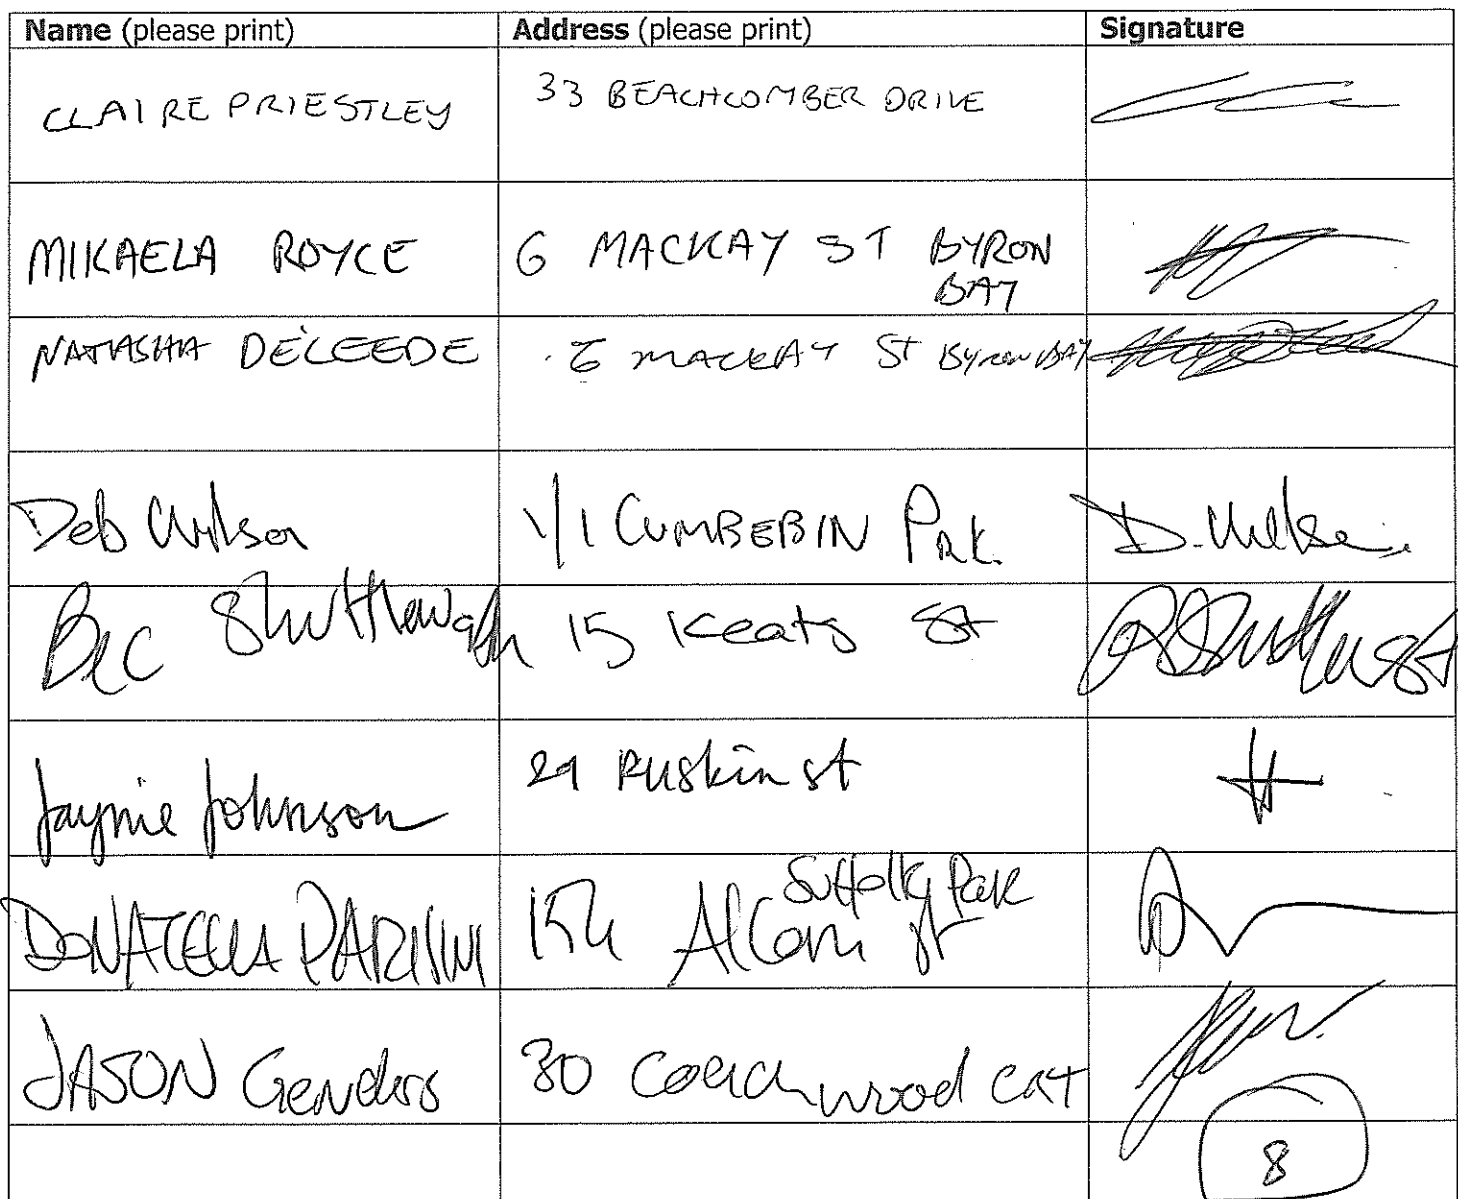 Name (please print) Address (please print) Signature
CLAIRE PRIESTLEY 33 BEACHCOMBER DRIVE
MIKAELA ROYCE 6 MACKAY ST BYRON
BAY
NATASHA DE'LEEDE 6 MACKAY ST BYRON BAY
Deb Wilson 1/1 CUMBEBIN Park. D. Wilson
Bec 15 Keats St
Jaymie Johnson 29 Ruskin st
Suffolk Park
DONATELLA PARISINI Alcorn st
JASON Genders 30 Coachwood CRT
8